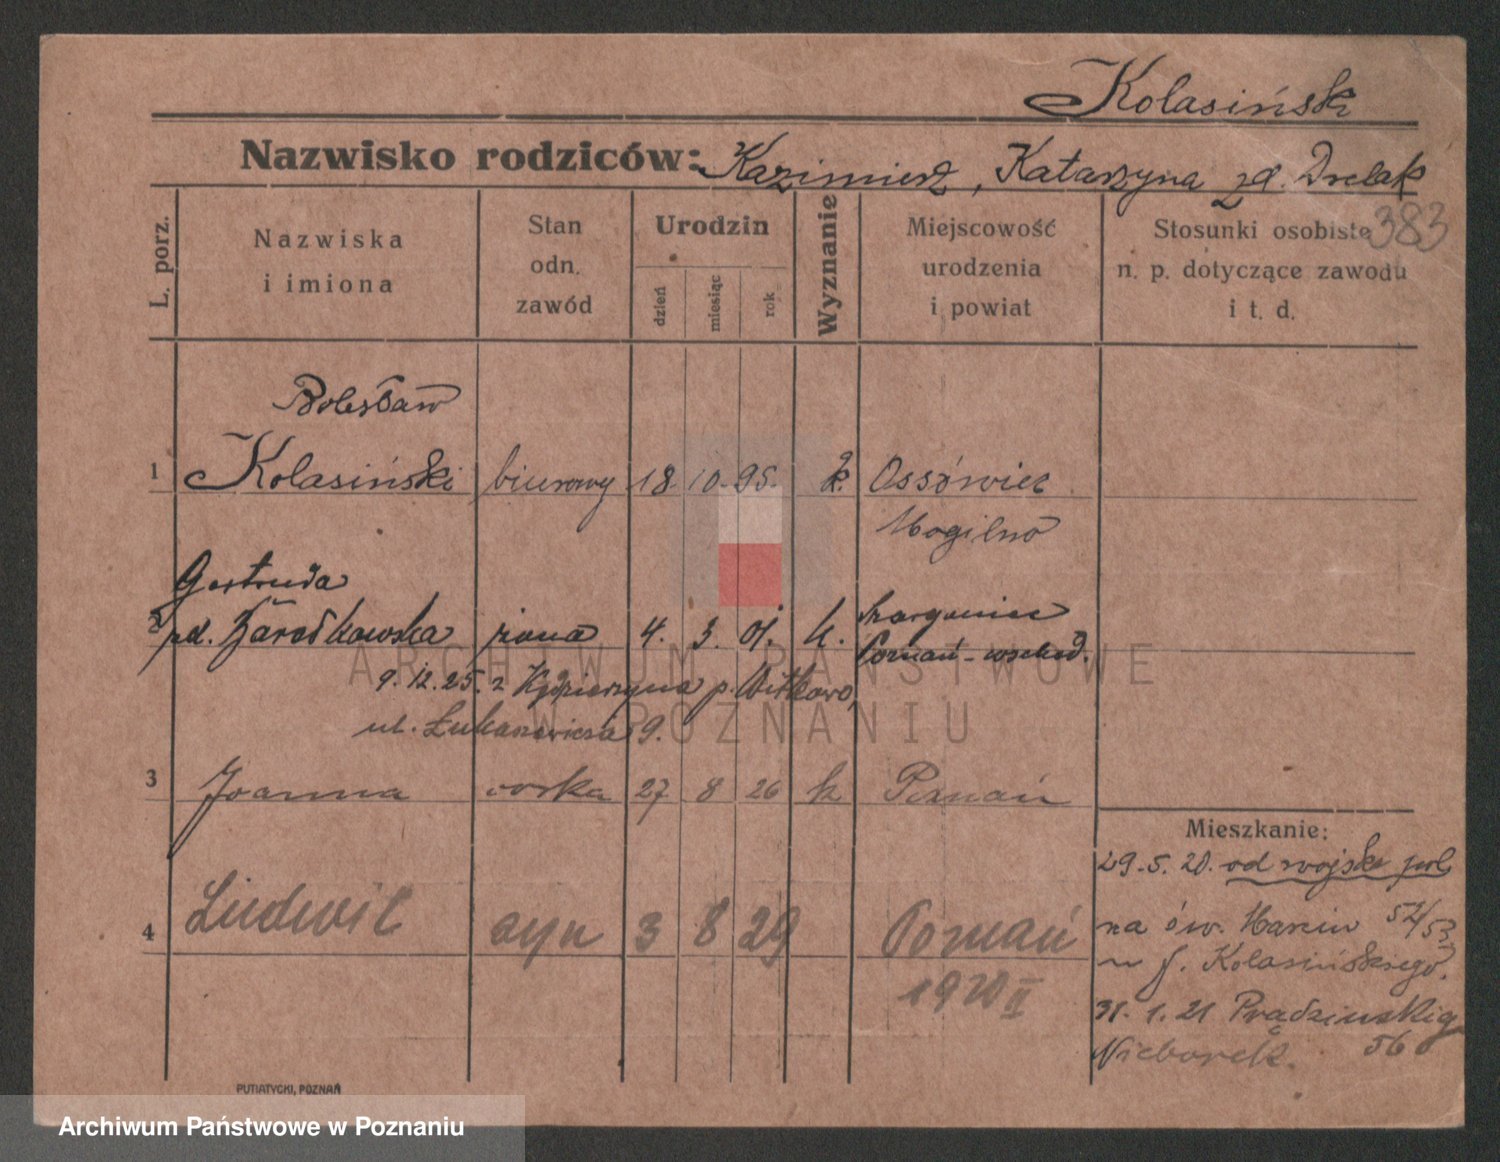 Kolasiński
Nazwisko rodziców: Kazimierz, Katarzyna zd. Drelak
383
L. porz.
Nazwiska
i imiona
Stan
odn.
zawód
Urodzin
dzień
miesiąc
rok
Wyznanie
Miejscowość
urodzenia
i powiat
Stosunki osobiste
n. p. dotyczące zawodu
i t. d.
Bolesław
1 Kolasiński biurowy 18. 10. 95. k. Ossówiec
Mogilno
Gertruda
2 żona 4. 3. 01. k.
Poznań-wschod.
9. 12. 25. z p. Witkowo,
ul. Łukaszewicza 9.
3 Joanna córka 27 8 26 k Poznań
4 Ludwik syn 3 8 29 Poznań
Mieszkanie:
29. 5. 20. od wojska pol
na św. Marcin 52/53
f. Kolasińskiego.
31. 1. 21 Prądzyńskiego
56
PUTIATYCKI, POZNAŃ
ARCHIWUM PAŃSTWOWE
W POZNANIU
Archiwum Państwowe w Poznaniu